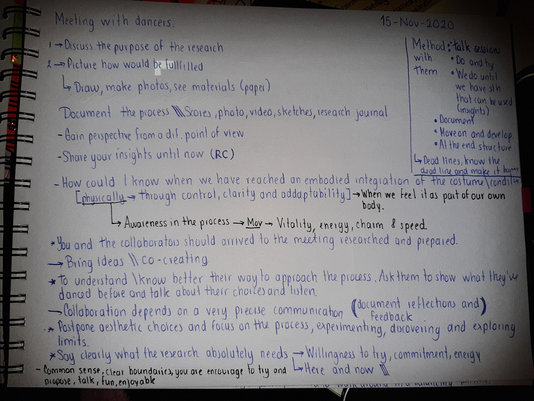 Meeting with dancers.
15-Nov-2020
1 → Discuss the purpose of the research
2 → Picture how would be fullfilled
↳ Draw, make photos, see materials (paper)
Document the process \\\ Scores, photo, video, sketches, research journal
- Gain perspective from a dif. point of view
- Share your insights until now (RC)
Method: talk sessions
with
Them
• Do and try
• We do until
we have sth
that can be used
(insights)
• Document
• Move on and develop
• At the end structure
↳ Dead lines, know the
dead line and make it
- How could I know when we have reached an embodied integration of the costume\condition
[physically → through control, clarity and addaptability] → When we feel it as part of our own
body.
↳ Awareness in the process → Mov → Vitality, energy, charm & speed
* You and the collaborators should arrived to the meeting researched and prepared.
→ Bring ideas \\ co-creating
* To understand \ know better their way to approach the process. Ask them to show what they've
danced before and talk about their choices and listen.
→ Collaboration depends on a very precise communication (document reflections and
feedback)
* Postpone aesthetic choices and focus on the process, experimenting, discovering and exploring
limits.
* Say clearly what the research absolutely needs → Willingness to try, commitment, energy
↳ Here and now \\\
- Common sense, clear boundaries, you are encourage to try and
propose, talk, fun, enjoyable